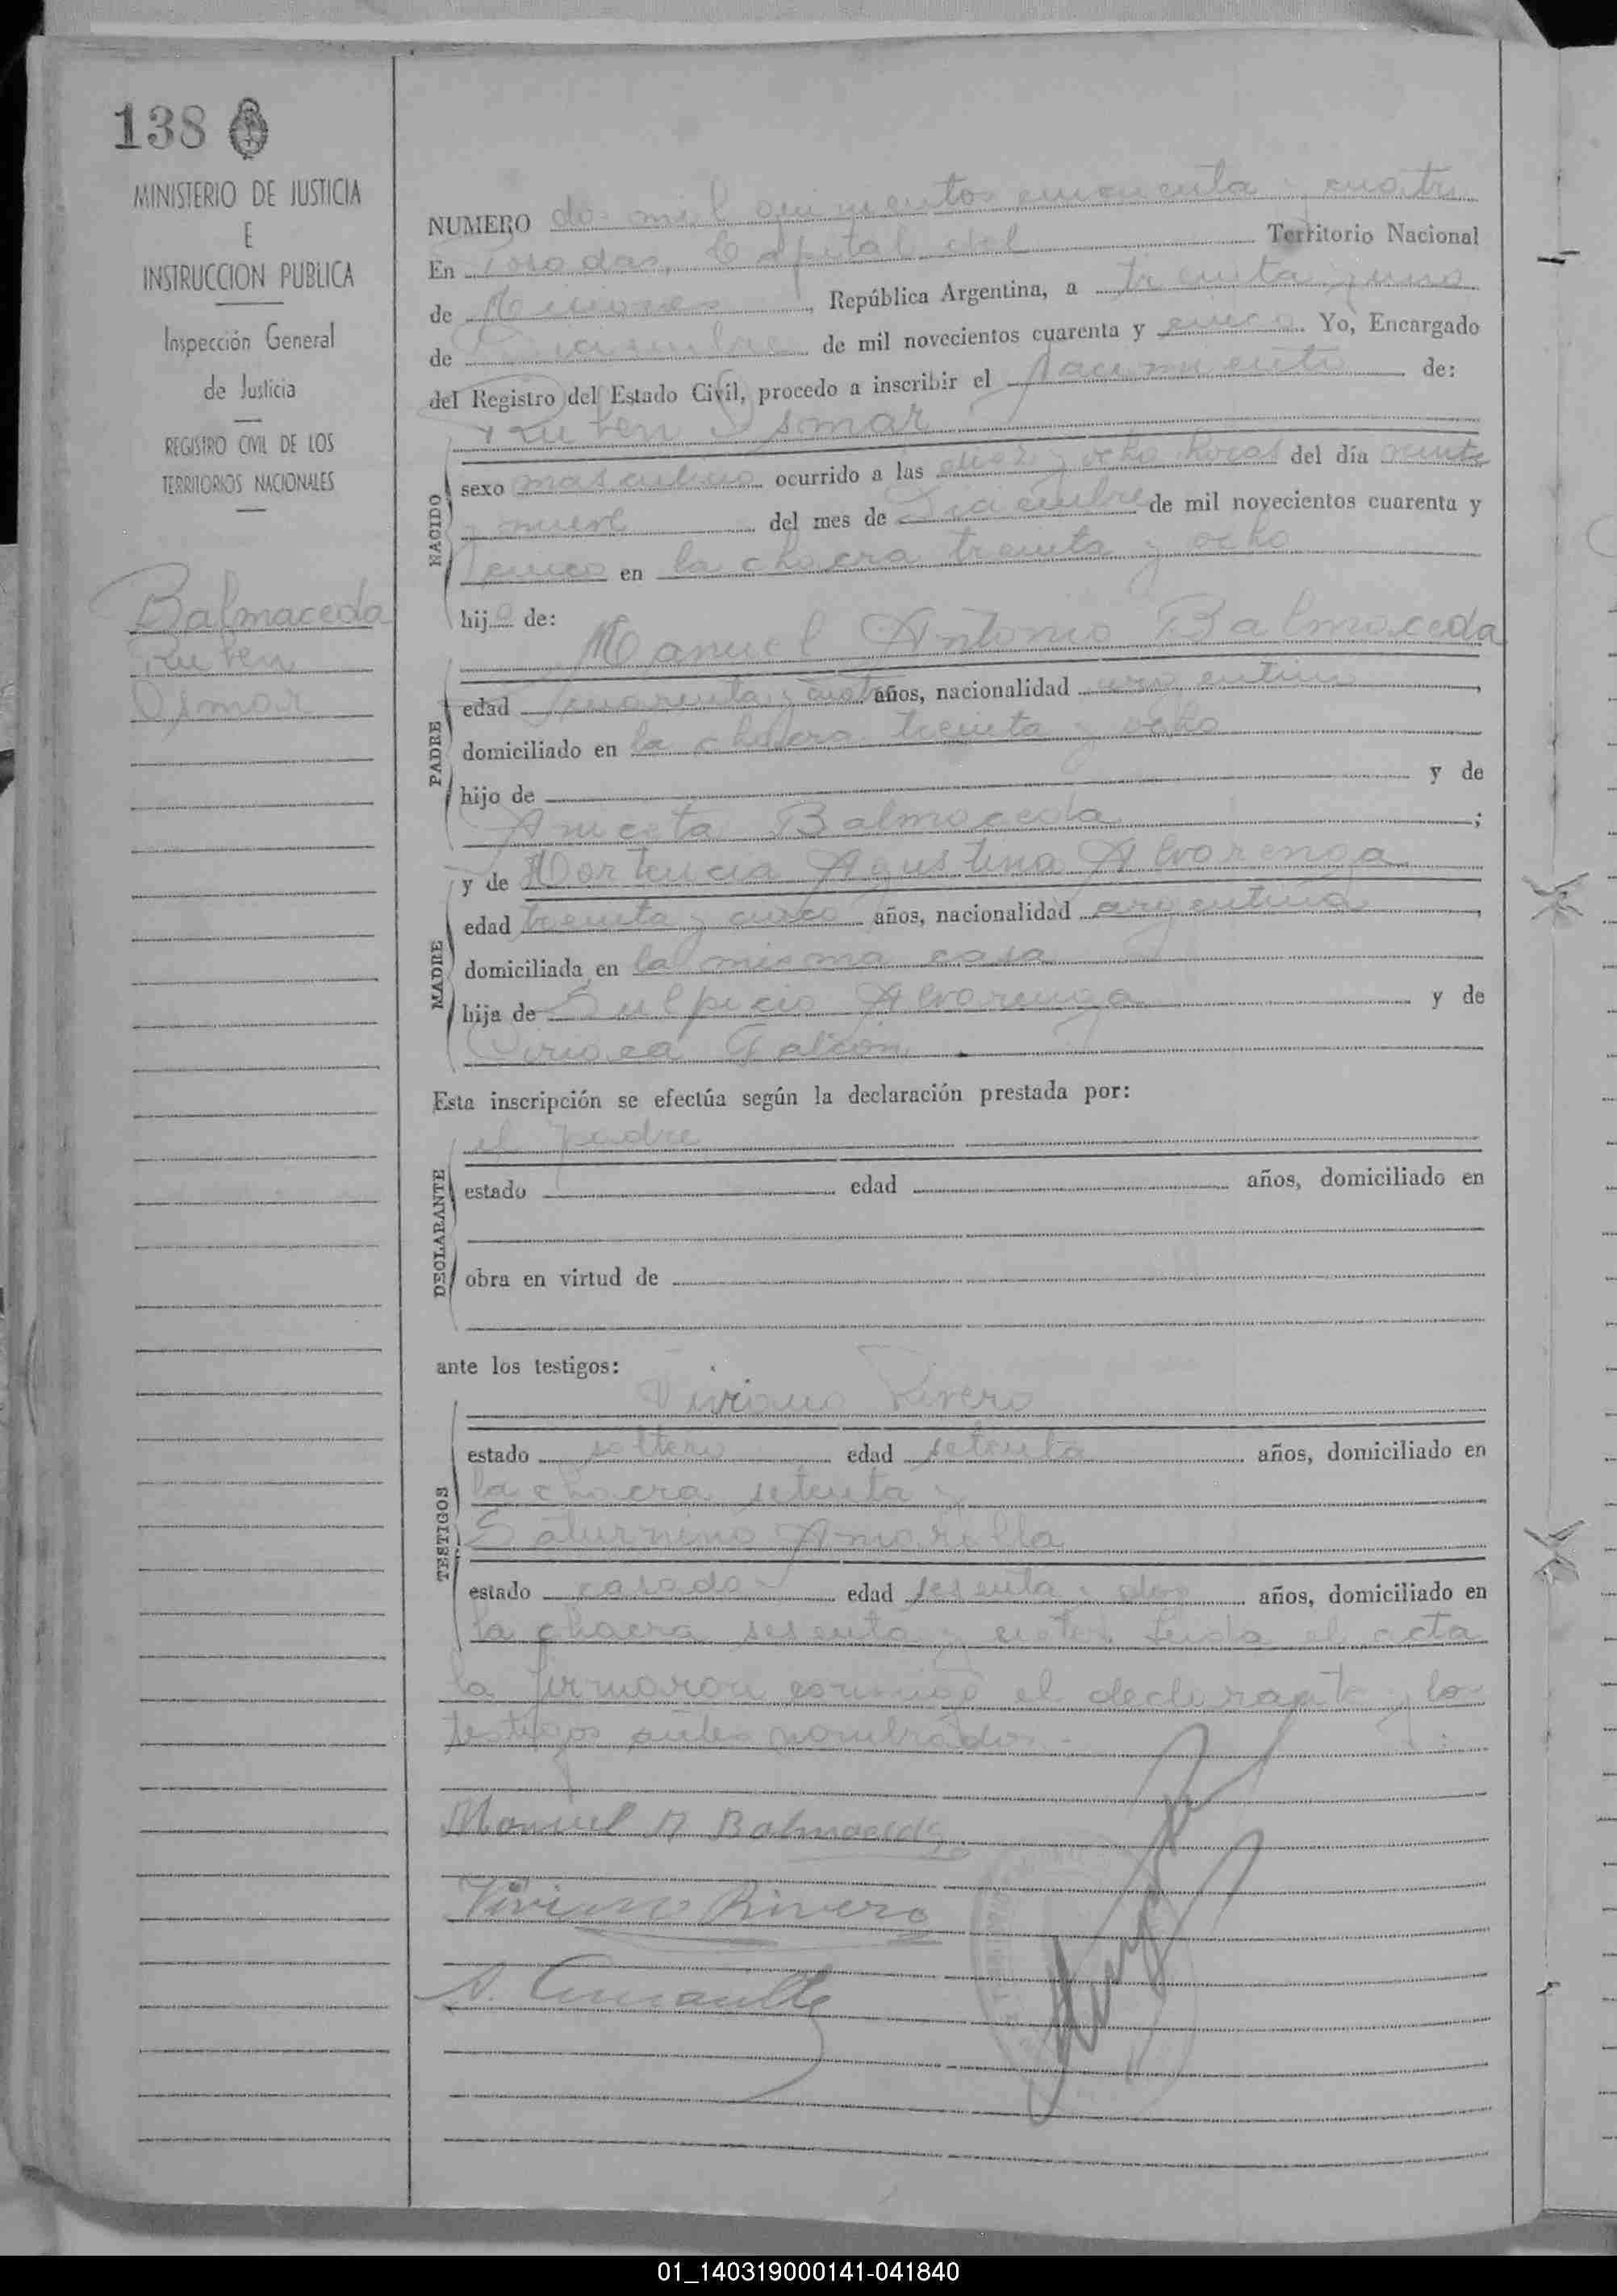 138
MINISTERIO DE JUSTICIA
E
INSTRUCCION PUBLICA
Inspección General
de Justicia
REGISTRO CIVIL DE LOS
TERRITORIOS NACIONALES
Balmaceda
Ruben
Osmar
NUMERO dos mil quinientos cincuenta y cuatro
En Posadas, Capital del Territorio Nacional
de Misiones, República Argentina, a treinta y uno
de Diciembre de mil novecientos cuarenta y cinco Yo, Encargado
del Registro del Estado Civil, procedo a inscribir el nacimiento de:
Ruben Osmar
NACIDO
sexo masculino ocurrido a las diez y ocho horas del día veinte
y nueve del mes de Diciembre de mil novecientos cuarenta y
cinco en la chacra treinta y ocho
hijo de:
Manuel Antonio Balmaceda
PADRE
edad cuarenta y cuatro años, nacionalidad argentino,
domiciliado en la chacra treinta y ocho
hijo de y de
Aniceta Balmaceda;
y de Hortencia Agustina Alvarenga
MADRE
edad treinta y cinco años, nacionalidad argentina,
domiciliada en la misma casa
hija de Sulpicio Alvarenga y de
Ciriaca Falcón.
Esta inscripción se efectúa según la declaración prestada por:
el padre
DECLARANTE
estado edad años, domiciliado en
obra en virtud de
ante los testigos:
Viviano Rivero
TESTIGOS
estado soltero edad setenta años, domiciliado en
la chacra setenta y
Saturnino Amarilla
estado casado edad sesenta y dos años, domiciliado en
la chacra sesenta y siete. Leida el acta
la firmaron conmigo el declarante y los
testigos antes nombrados.-
Manuel A Balmaceda
Viviano Rivero
S. Amarilla
01_140319000141-041840